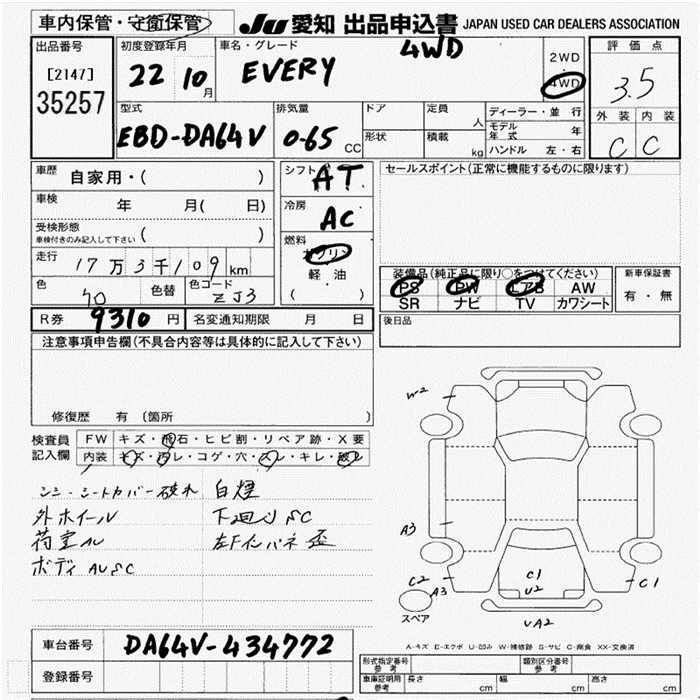 車内保管・守衛保管
JU 愛知 出品申込書 JAPAN USED CAR DEALERS ASSOCIATION
出品番号 [2147] 35257
初度登録年月 22 10月
車名・グレード EVERY 4WD
2WD・4WD
評価点 3.5
外装 C 内装 C
型式 EBD-DA64V
排気量 0.65 CC
ドア 形状
定員 人 積載 kg
ディーラー・並行
モデル年式 年
ハンドル 左・右
車歴 自家用・( )
車検 年 月( 日)
受検形態 車検付きのみ記入して下さい ( )
走行 17万3千109km
色 40 色替 色コード ZJ3
シフト AT
冷房 AC
燃料 ガソリン 軽油 ( )
セールスポイント(正常に機能するものに限ります)
装備品(純正品に限り○をつけてください)
PS PW エアB AW
SR ナビ TV カワシート
新車保証書 有・無
R券 9310円 名変通知期限 月 日
後日品
注意事項申告欄(不具合内容等は具体的に記入して下さい)
修復歴 有 〔箇所 〕
検査員記入欄
FW キズ・飛石・ヒビ割・リペア跡・X要
内装 キズ・汚レ・コゲ・穴・スレ・キレ・破レ
シミ・シートカバー破れ 白煙
外ホイール 下廻りSC
荷室AU
ボディAUSC
W2
A3
C2
A3
C1
U2
C1
UA2
スペア
A-キズ E-エクボ U-凹み W-補修跡 S-サビ C-腐食 XX-交換済
車台番号 DA64V-434772
登録番号
形式指定番号 参考 類別区分番号 参考
車庫証明用 参考 長さ cm 幅 cm 高さ cm